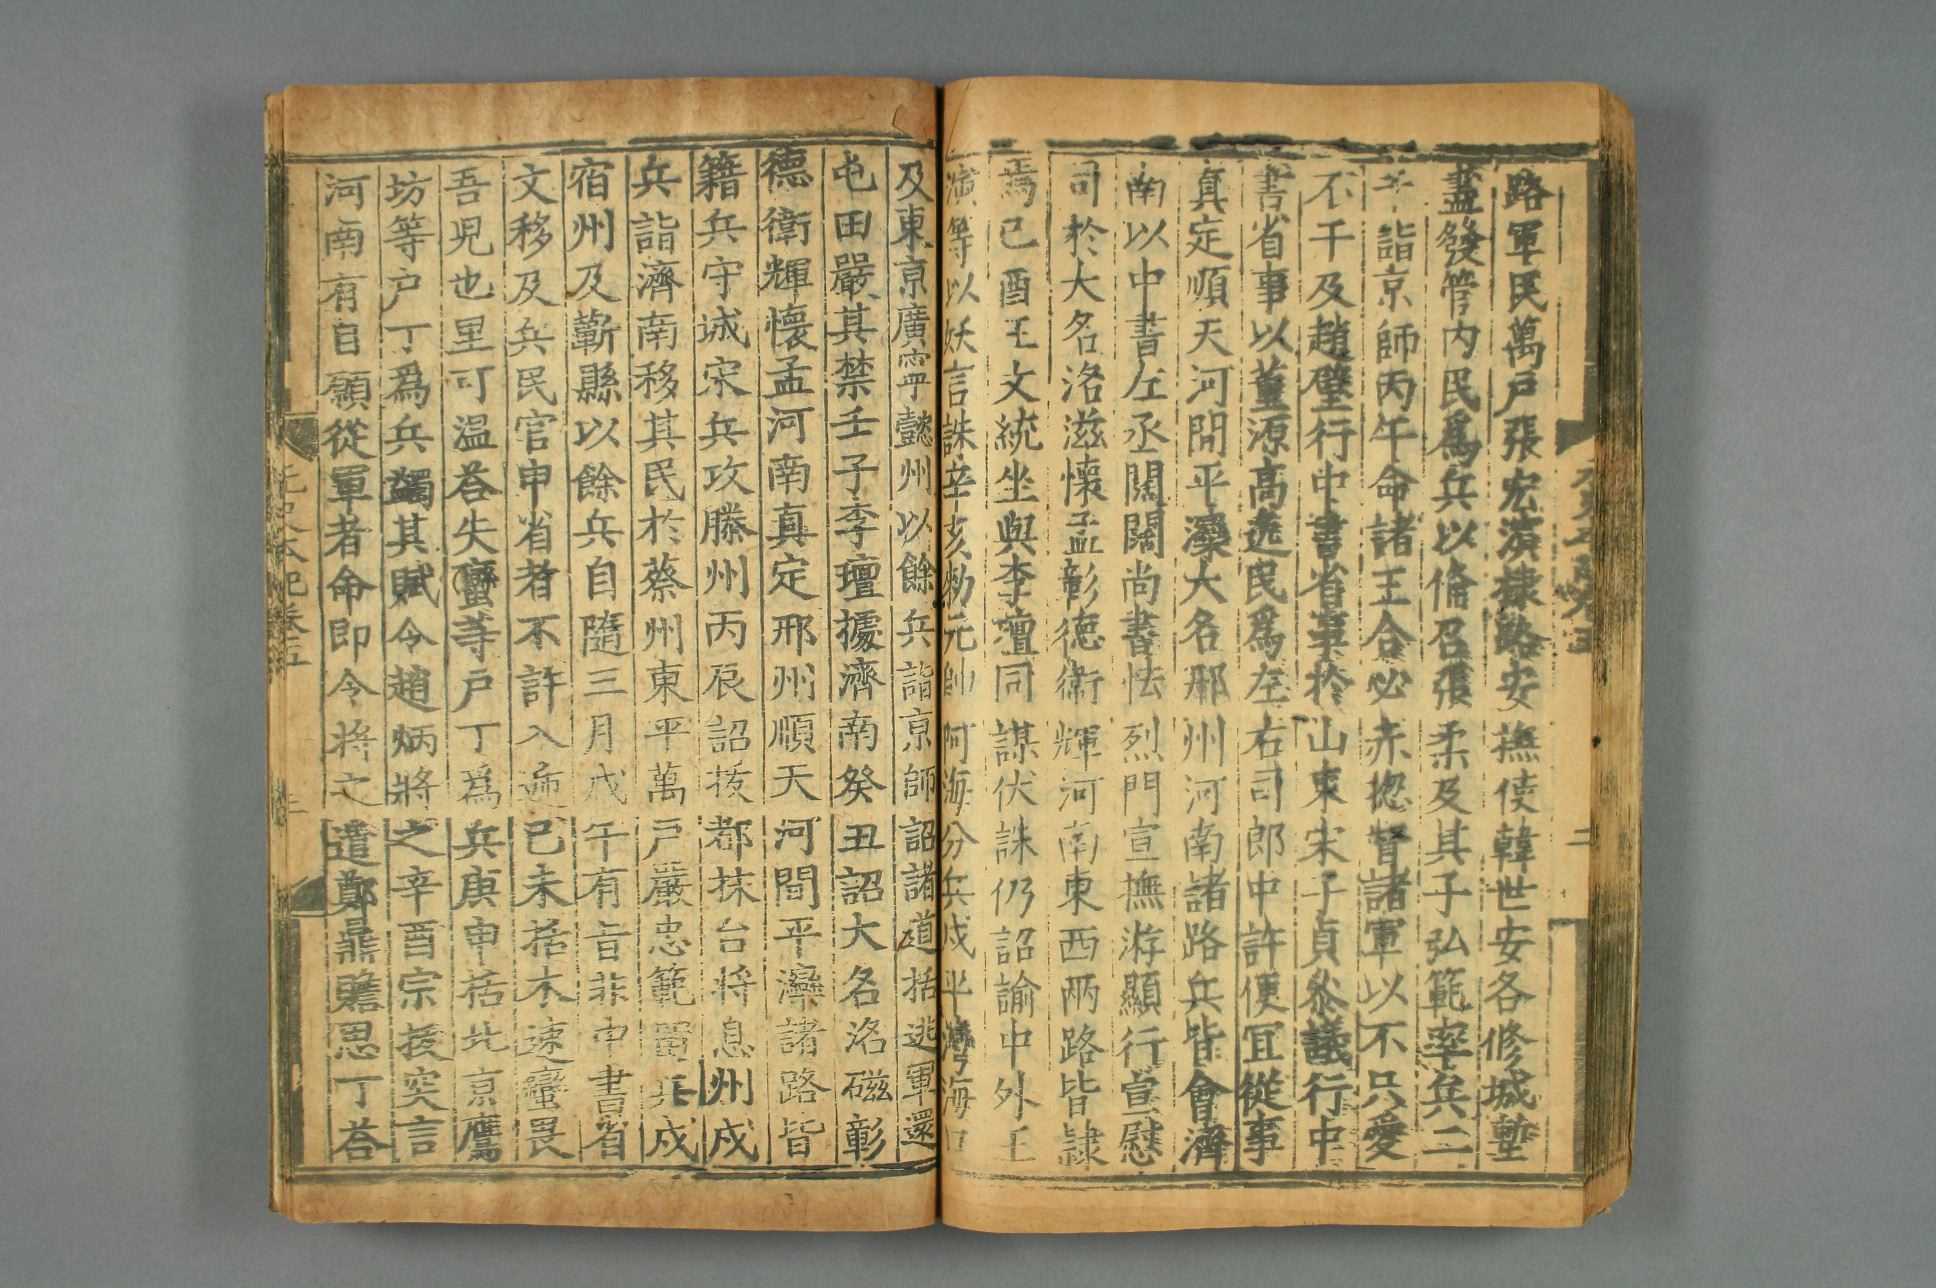 路軍民萬戶張宏濱棣路安撫使韓世安各修城塹
盡發管内民爲兵以俻召張柔及其子弘範率兵二
千詣京師丙午命諸王合必赤摠督諸軍以不只愛
不干及趙璧行中書省事於山東宋子貞叅議行中
書省事以董源高逸民爲左右司郎中許便冝從事
真定順天河間平灤大名邢州河南諸路兵皆會濟
南以中書左丞闊闊尚書怯烈門宣撫游顯行宣慰
司於大名洺滋懷孟彰德衛輝河南東西兩路皆隷
焉己酉王文統坐與李璮同謀伏誅仍詔諭中外王
演等以妖言誅辛亥勑元帥阿海分兵戍平灣海口
及東京廣寧懿州以餘兵詣京師詔諸道括逃軍還
屯田嚴其禁壬子李璮據濟南癸丑詔大名洺磁彰
德衛輝懷孟河南真定邢州順天河間平灤諸路皆
籍兵守城宋兵攻滕州丙辰詔拔都抹台將息州戍
兵詣濟南移其民於蔡州東平萬戶嚴忠範留兵戍
宿州及蘄縣以餘兵自隨三月戊午有旨非中書省
文移及兵民官申省者不許入遞己未括木速蠻畏
吾兒也里可温荅失蠻等戶丁爲兵庚申括北京鷹
坊等户丁爲兵蠲其賦令趙炳將之辛酉宗拔突言
河南有自願從軍者命即令將之遣鄭鼎贍思丁荅
元史本紀卷五
三
二